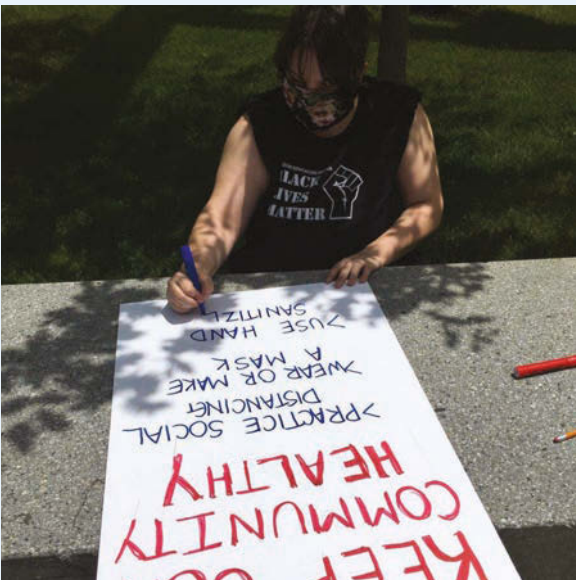 BLACK
LIVES
MATTER
KEEP
COMMUNITY
HEALTHY
>PRACTICE SOCIAL
DISTANCING
>WEAR OR MAKE
A MASK
>USE HAND
SANITIZ